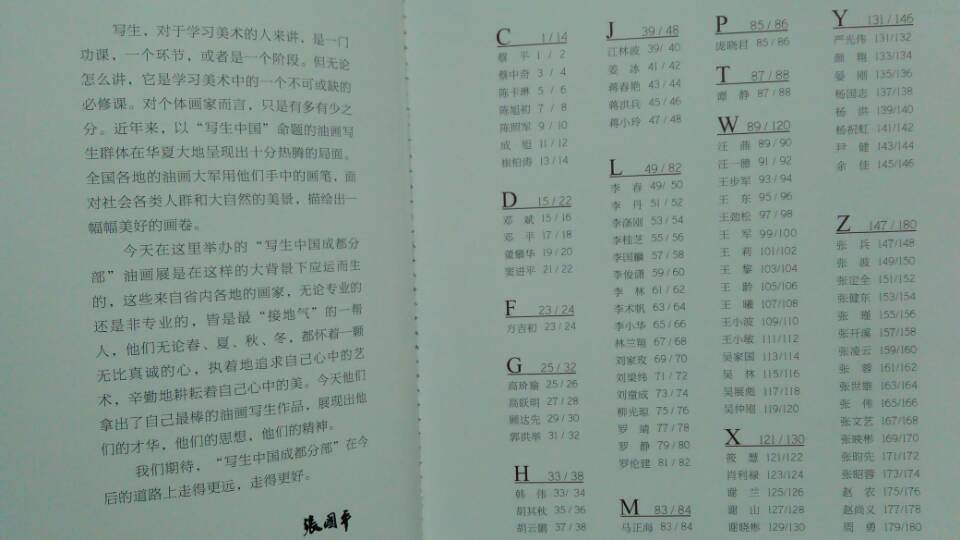 写生，对于学习美术的人来讲，是一门
功课，一个环节，或者是一个阶段。但无论
怎么讲，它是学习美术中的一个不可或缺的
必修课。对个体画家而言，只是有多有少之
分。近年来，以“写生中国”命题的油画写
生群体在华夏大地呈现出十分热腾的局面。
全国各地的油画大军用他们手中的画笔，面
对社会各类人群和大自然的美景，描绘出一
幅幅美好的画卷。
今天在这里举办的“写生中国成都分
部”油画展是在这样的大背景下应运而生
的，这些来自省内各地的画家，无论专业的
还是非专业的，皆是最“接地气”的一帮
人，他们无论春、夏、秋、冬，都怀着一颗
无比真诚的心，执着地追求自己心中的艺
术，辛勤地耕耘着自己心中的美。今天他们
拿出了自己最棒的油画写生作品，展现出他
们的才华，他们的思想，他们的精神。
我们期待，“写生中国成都分部”在今
后的道路上走得更远，走得更好。
张国平
C 1 / 14
蔡 平 1 / 2
蔡中奇 3 / 4
陈卡琳 5 / 6
陈旭初 7 / 8
陈照军 9 / 10
成 旭 11 / 12
崔柏涛 13 / 14
D 15 / 22
邓 斌 15 / 16
邓 平 17 / 18
董攀华 19 / 20
窦进平 21 / 22
F 23 / 24
方吉初 23 / 24
G 25 / 32
高玠瑜 25 / 26
高跃明 27 / 28
顾达先 29 / 30
郭洪举 31 / 32
H 33 / 38
韩 伟 33/ 34
胡其秋 35 / 36
胡云鹏 37 / 38
J 39 / 48
江林波 39/ 40
姜 冰 41 / 42
蒋春艳 43 / 44
蒋洪兵 45 / 46
蒋小玲 47 / 48
L 49 / 82
李 春 49/ 50
李 丹 51 / 52
李涤刚 53 / 54
李桂芝 55 / 56
李国麟 57 / 58
李俊潇 59 / 60
李 林 61 / 62
李木帆 63 / 64
李小华 65 / 66
林兰翔 67 / 68
刘家玫 69 / 70
刘梁炜 71 / 72
刘童成 73 / 74
柳光琼 75 / 76
罗 靖 77 / 78
罗 静 79 / 80
罗伦建 81 / 82
M 83 / 84
马正海 83 / 84
P 85 / 86
庞晓目 85 / 86
T 87 / 88
谭 静 87 / 88
W 89 / 120
汪 燕 89 / 90
汪一德 91 / 92
王步军 93 / 94
王 东 95 / 96
王劲松 97 / 98
王 军 99/100
王 莉 101/102
王 黎 103/104
王 龄 105/106
王 曦 107/108
王小波 109/110
王小敏 111/112
吴家国 113/114
吴 林 115/116
吴展彪 117/118
吴仲刚 119/120
X 121 / 130
筱 慧 121/122
肖利禄 123/124
谢 兰 125/126
谢 山 127/128
谢晓彬 129/130
Y 131 / 146
严光伟 131/132
颜 翔 133/134
晏 刚 135/136
杨国志 137/138
杨 洪 139/140
杨祝虹 141/142
尹 健 143/144
余 佳 145/146
Z 147 / 180
张 兵 147/148
张 波 149/150
张定全 151/152
张健东 153/154
张 瑾 155/156
张开溪 157/158
张凌云 159/160
张 蓉 161/162
张世雕 163/164
张 伟 165/166
张文艺 167/168
张映彬 169/170
张昀先 171/172
张昭蓉 173/174
赵 农 175/176
赵尚义 177/178
周 勇 179/180